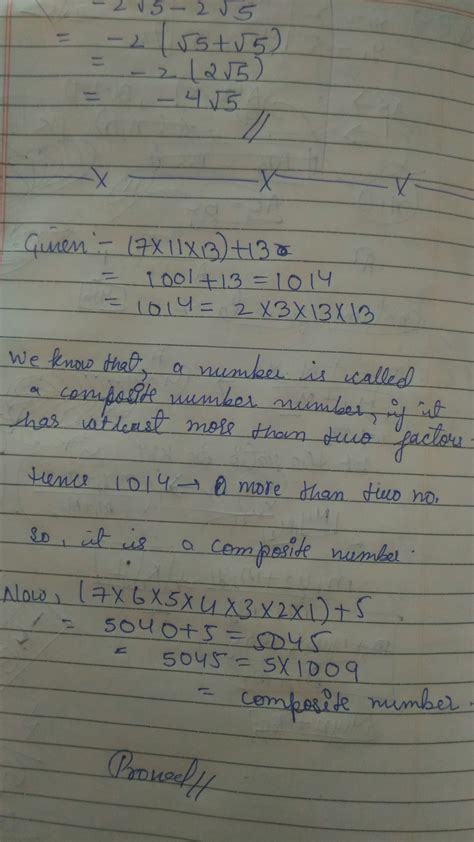 -2√5-2√5
= -2(√5+√5)
= -2(2√5)
= -4√5
//
x x x
Given:- (7X11X13)+13
= 1001+13=1014
= 1014= 2X3X13X13
We know that, a number is called
a composite number number, if it
has atleast more than two factors.
Hence 1014→ more than two no.
so, it is a composite number.
Now, (7X6X5X4X3X2X1)+5
= 5040+5=5045
= 5045=5X1009
= composite number.
Proved//